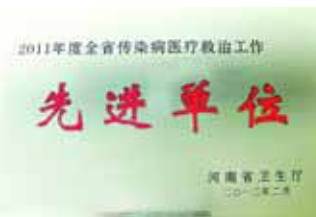 2011年度全省传染病医疗救治工作
先进单位
河南省卫生厅
二〇一二年二月